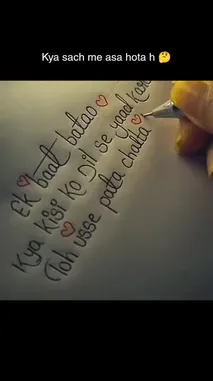 Kya sach me asa hota h 🤔
Ek baat batao
Kya kisi ko Dil se yaad karo
Toh usse pata chalta